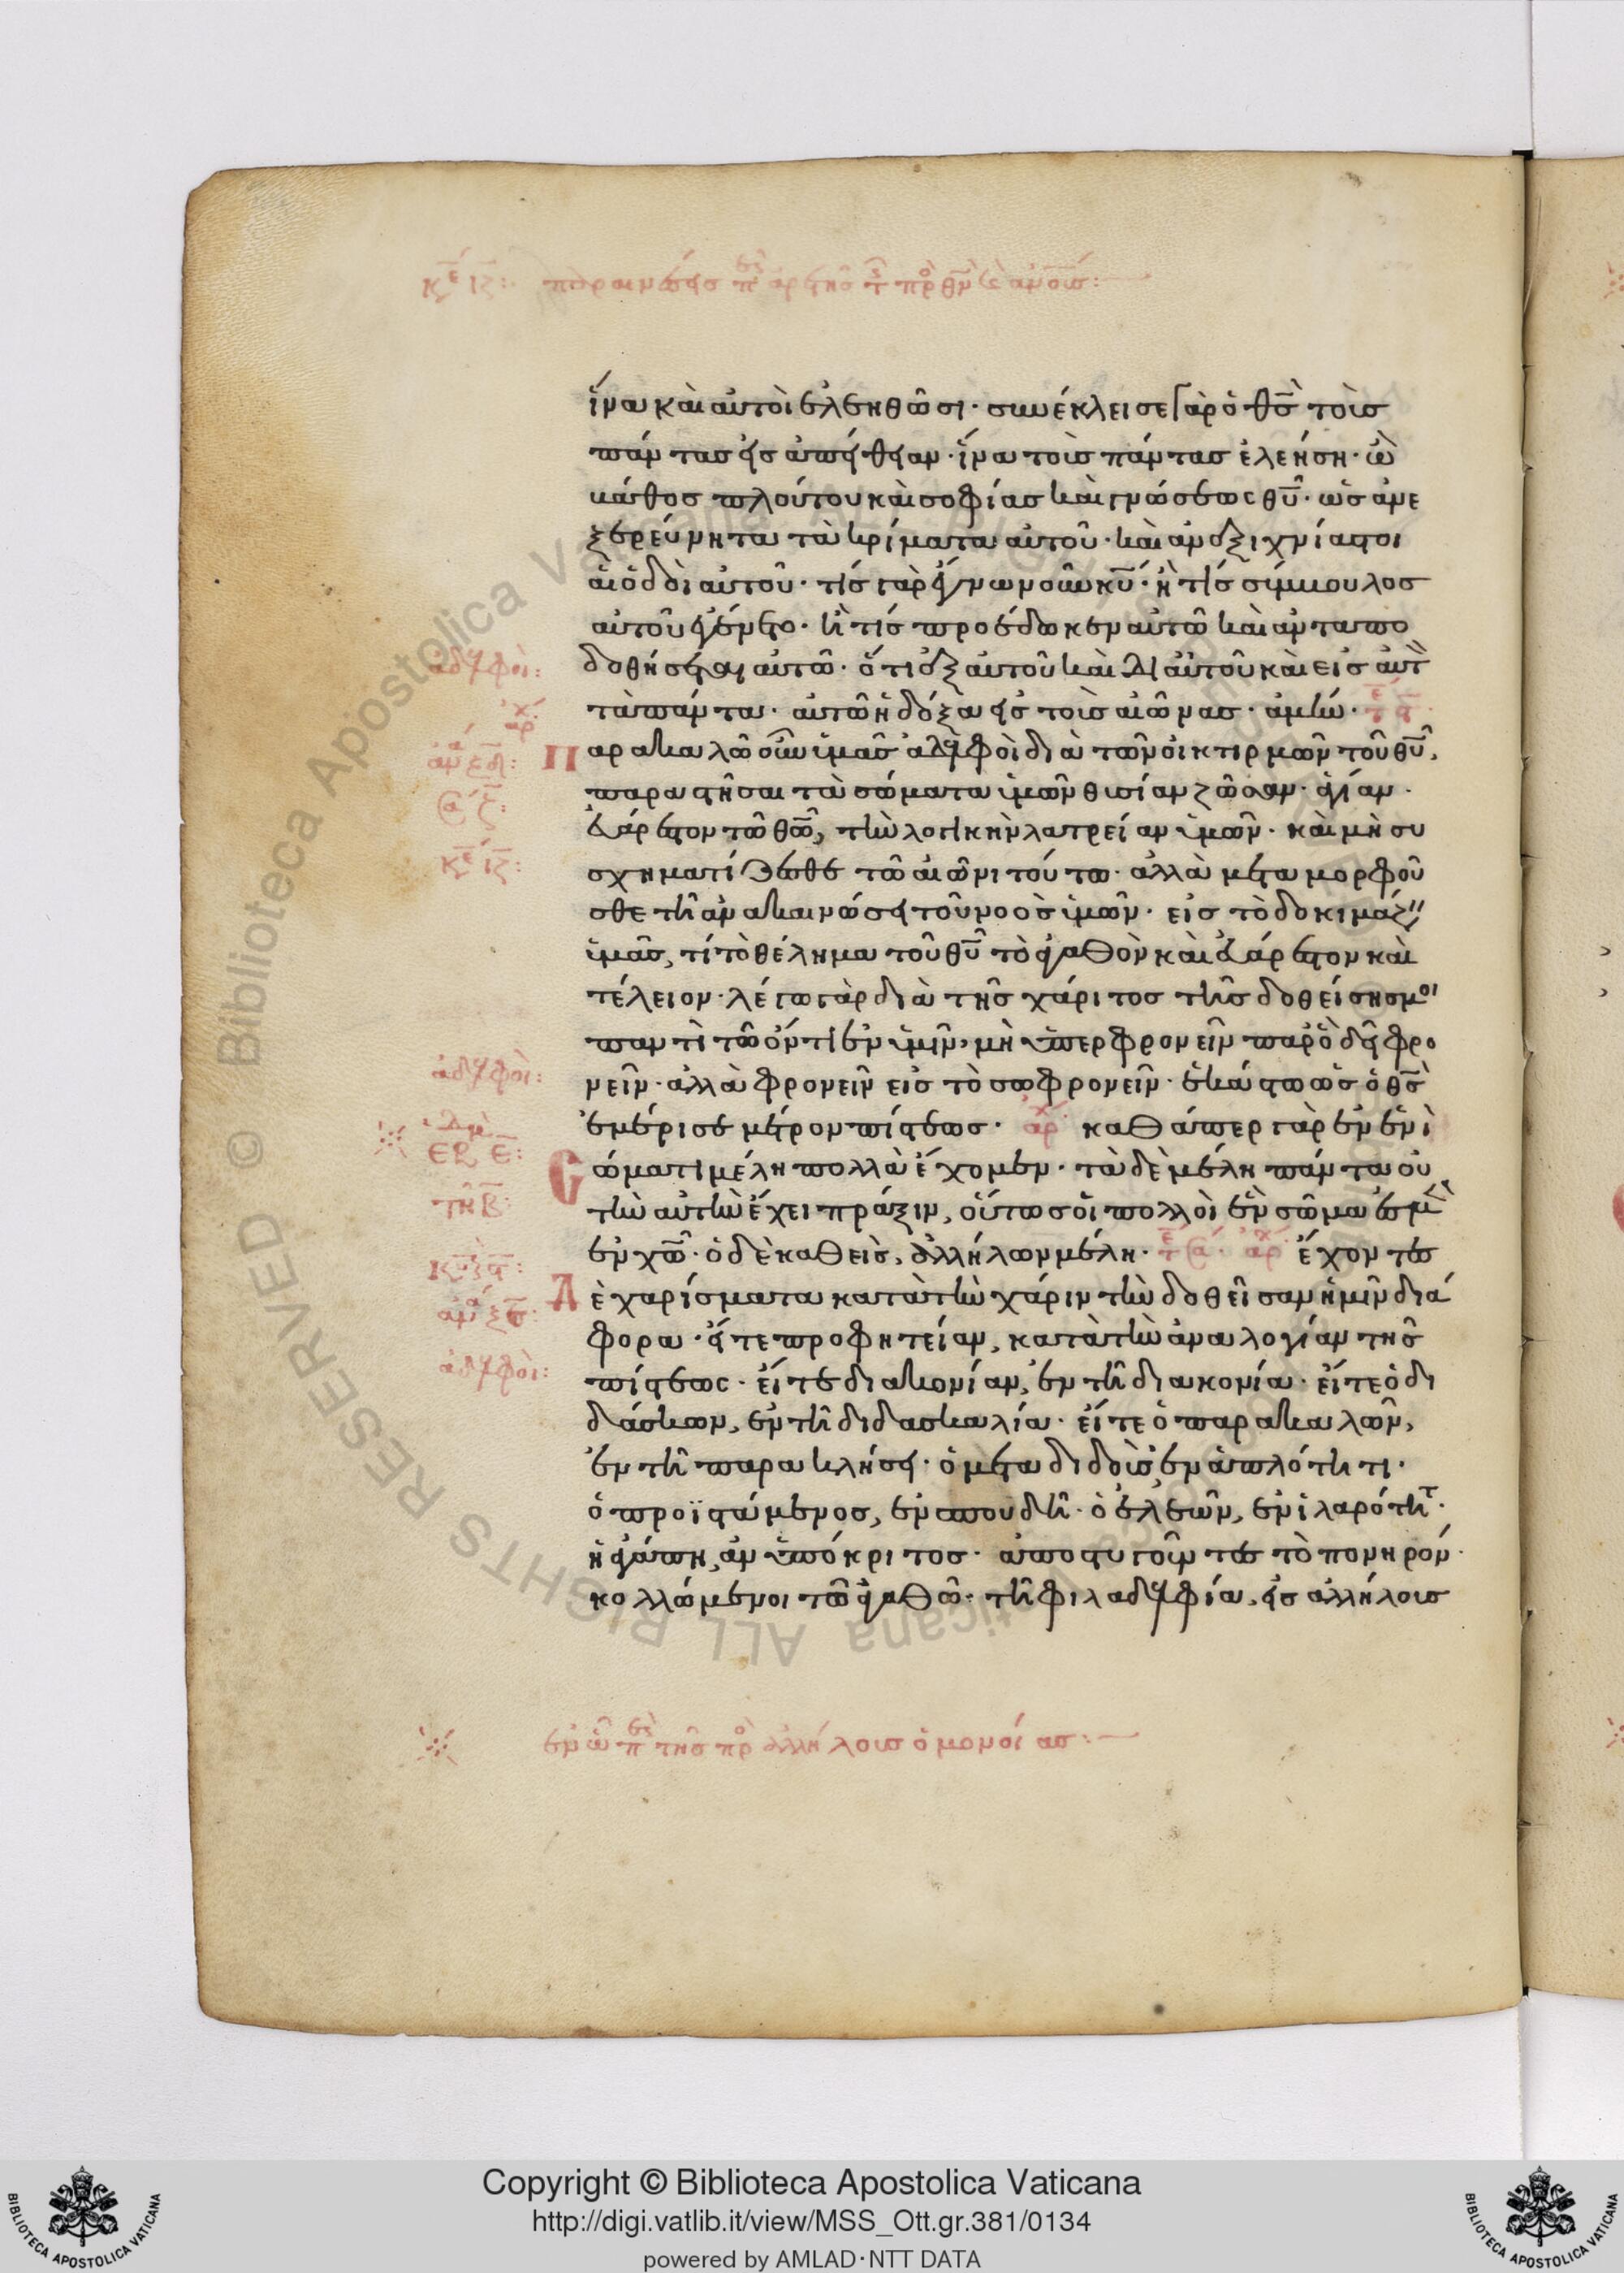 ἵνα καὶ αὐτοὶ ἐλεηθῶσι· συνέκλεισε γὰρ ὁ θ̅ς̅ τοὺς
πάντας εἰς ἀπείθειαν· ἵνα τοὺς πάντας ἐλεήση· ὦ
βάθος πλούτου καὶ σοφίας καὶ γνώσεως θ̅υ̅· ὡς ἀνε
ξερεύνητα τὰ κρίματα αὐτοῦ· καὶ ἀνεξιχνίαστοι
αἱ ὁδοὶ αὐτοῦ· τίς γὰρ ἔγνω νοῦν κ̅υ̅· ἢ τίς σύμβουλος
αὐτοῦ ἐγένετο· ἢ τίς προέδωκεν αὐτῶ καὶ ἀνταπο
ἀδελφοὶ:
δοθήσεται αὐτῶ· ὅτι ἐξ αὐτοῦ καὶ δι αὐτοῦ καὶ εἰς αὐτ
τὰ πάντα· αὐτῶ ἡ δόξα εἰς τοὺς αἰῶνας· ἀμήν·
Παρακαλῶ οὖν ὑμᾶς ἀδελφοὶ διὰ τῶν οἰκτιρμῶν τοῦ θ̅υ̅,
παραστῆσαι τὰ σώματα ὑμῶν θυσίαν ζῶσαν· ἁγίαν·
εὐάρεστον τῶ θ̅ω̅, τὴν λογικὴν λατρείαν ὑμῶν· καὶ μὴ συ
κ̅ε̅ ι̅ζ̅:
σχηματίζεσθε τῶ αἰῶνι τούτω· ἀλλὰ μεταμορφοῦ
σθε τῆ ἀνακαινώσει τοῦ νοὸς ὑμῶν· εἰς τὸ δοκιμάζειν
ὑμᾶς, τί τὸ θέλημα τοῦ θ̅υ̅ τὸ ἀγαθὸν καὶ εὐάρεστον καὶ
τέλειον· λέγω γὰρ διὰ τῆς χάριτος τῆς δοθείσης μοι
παντὶ τῶ ὄντι ἐν ὑμῖν, μὴ ὑπερφρονεῖν παρ ὃ δεῖ φρο
ἀδελφοὶ:
νεῖν· ἀλλὰ φρονεῖν εἰς τὸ σωφρονεῖν· ἑκάστω ὡς ὁ θ̅ς̅
ἐμέρισε μέτρον πίστεως· ἀρχ καθάπερ γὰρ ἐν ἑνὶ
Σώματι μέλη πολλὰ ἔχομεν· τὰ δὲ μέλη πάντα οὐ
τὴν αὐτὴν ἔχει πράξιν, οὕτως οἱ πολλοὶ ἓν σῶμα ἐσμὲν
ἐν χ̅ω̅· ὁ δὲ καθεὶς, ἀλλήλων μέλη· ἀρχ ἔχοντες
Δὲ χαρίσματα κατὰ τὴν χάριν τὴν δοθεῖσαν ἡμῖν διά
φορα· εἴτε προφητείαν, κατὰ τὴν ἀναλογίαν τῆς
ἀδελφοὶ:
πίστεως· εἴτε διακονίαν, ἐν τῆ διακονία· εἴτε ὁ δι
δάσκων, ἐν τῆ διδασκαλία· εἴτε ὁ παρακαλῶν,
ἐν τῆ παρακλήσει· ὁ μεταδιδοὺς ἐν ἁπλότητι·
ὁ προϊστάμενος, ἐν σπουδῆ· ὁ ἐλεῶν, ἐν ἱλαρότητ·
ἡ ἀγάπη, ἀνυπόκριτος· ἀποστυγοῦντες τὸ πονηρόν·
κολλώμενοι τῶ ἀγαθῶ· τῆ φιλαδελφία, εἰς ἀλλήλους
ἐν ὧ π τῆς πρ ἀλλήλους ὁμονοίας:
Copyright © Biblioteca Apostolica Vaticana
http://digi.vatlib.it/view/MSS_Ott.gr.381/0134
powered by AMLAD·NTT DATA
BIBLIOTECA APOSTOLICA VATICANA
BIBLIOTECA APOSTOLICA VATICANA
© Biblioteca Apostolica Vaticana ALL RIGHTS RESERVED